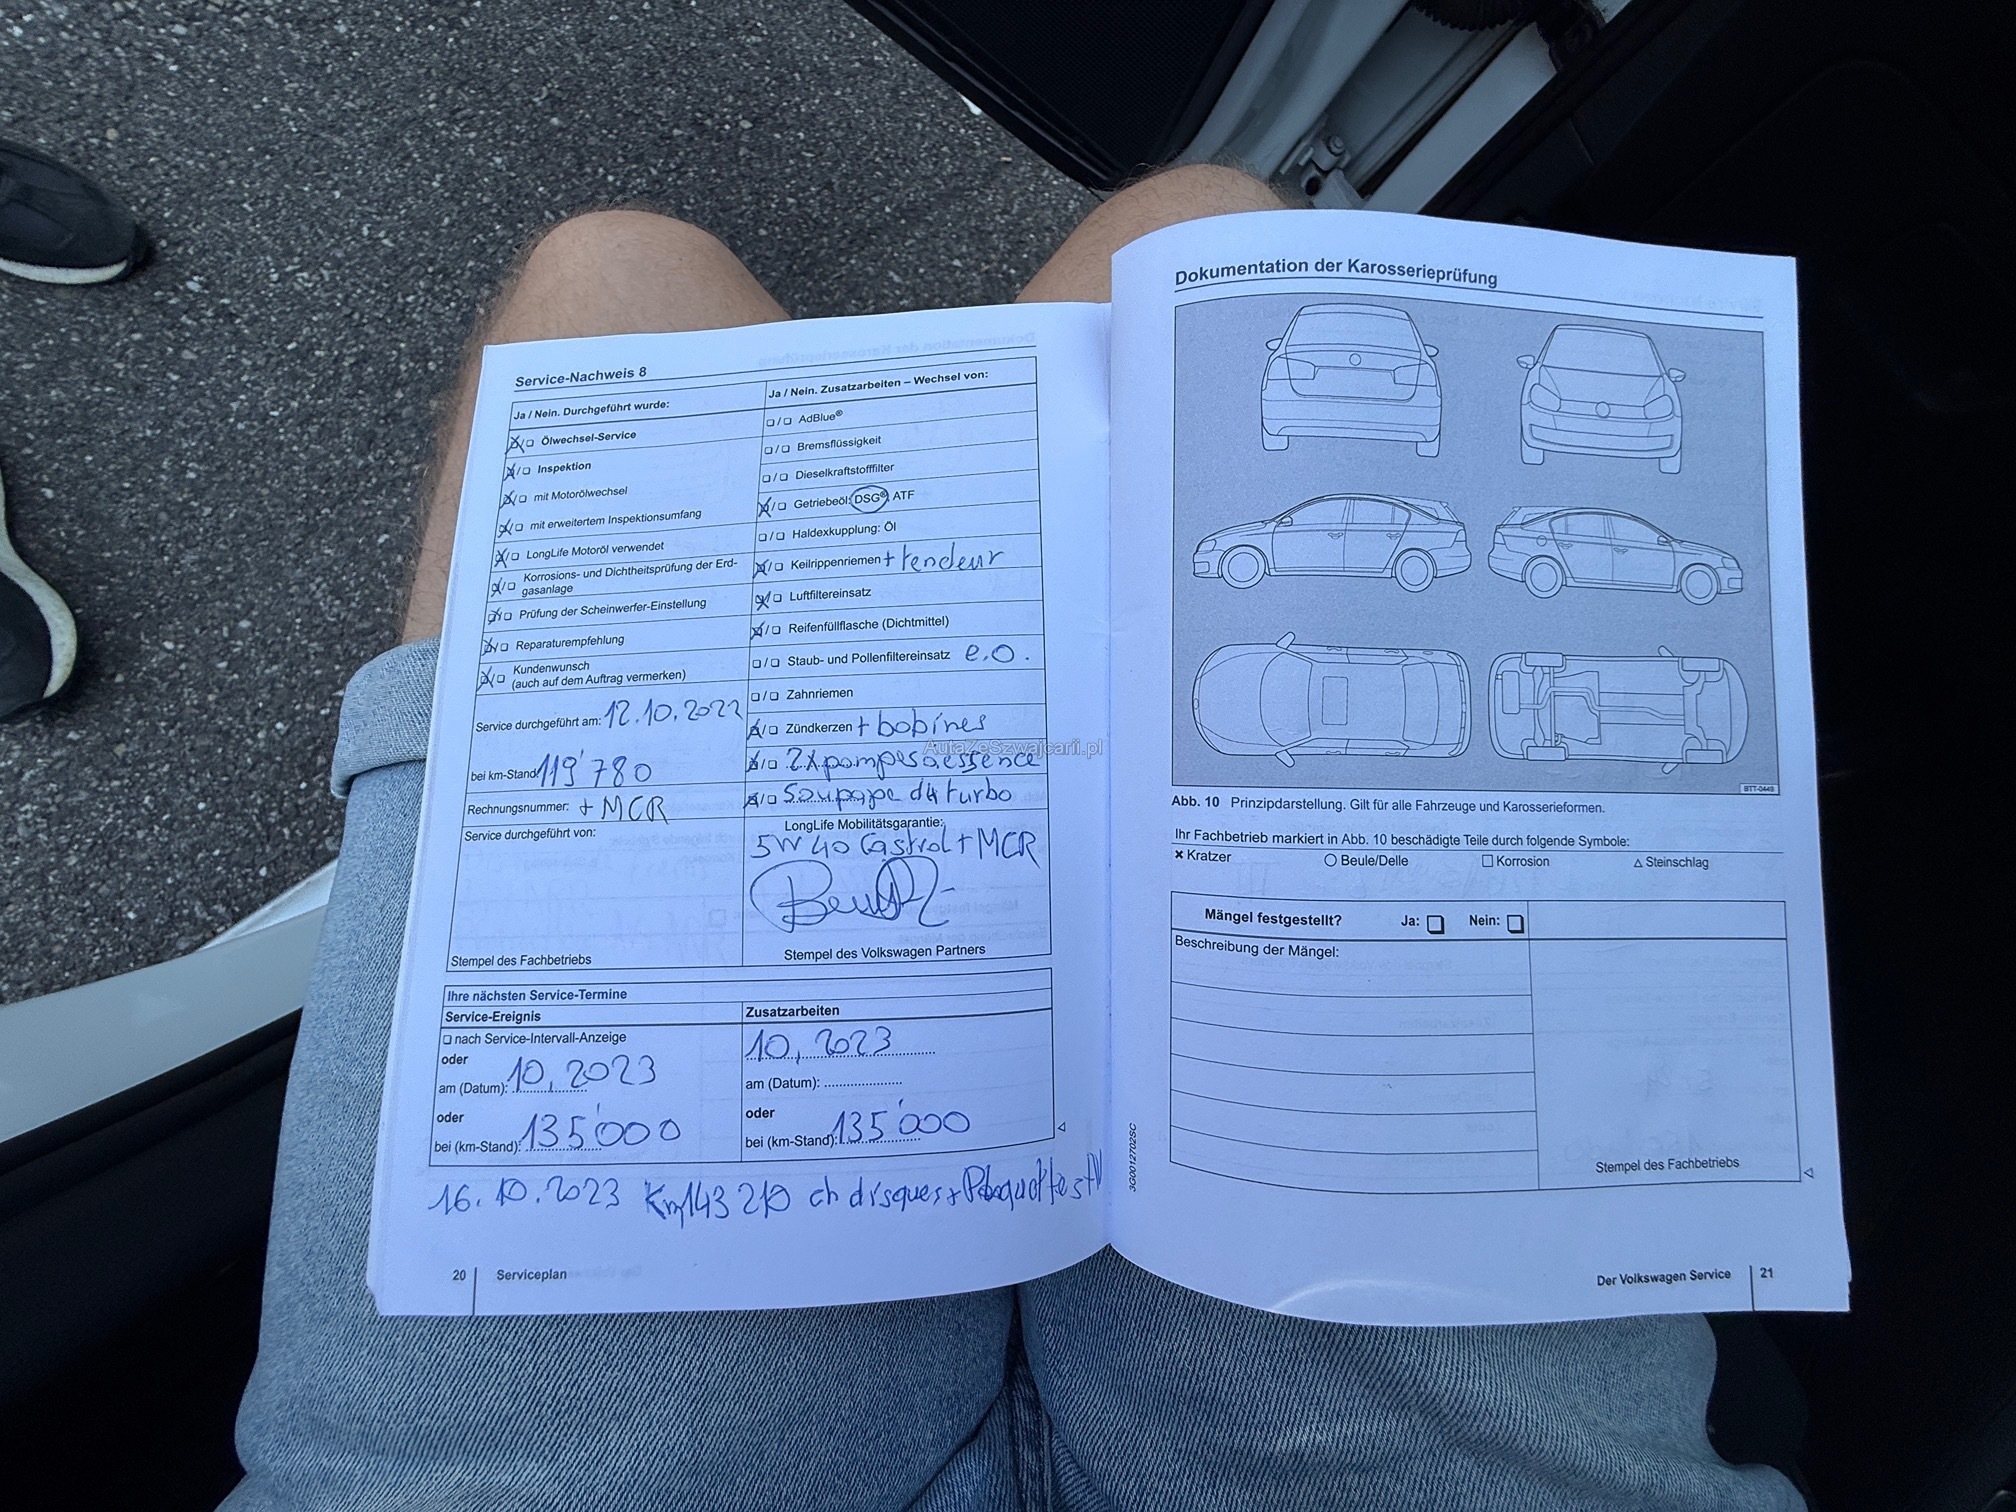 Service-Nachweis 8
Ja / Nein. Durchgeführt wurde:
Ölwechsel-Service
Inspektion
mit Motorölwechsel
mit erweitertem Inspektionsumfang
LongLife Motoröl verwendet
Korrosions- und Dichtheitsprüfung der Erd-
gasanlage
Prüfung der Scheinwerfer-Einstellung
Reparaturempfehlung
Kundenwunsch
(auch auf dem Auftrag vermerken)
Service durchgeführt am: 12.10.2022
bei km-Stand: 119'780
Rechnungsnummer: + MCR
Service durchgeführt von:
Stempel des Fachbetriebs
Ja / Nein. Zusatzarbeiten – Wechsel von:
AdBlue®
Bremsflüssigkeit
Dieselkraftstofffilter
Getriebeöl: DSG®, ATF
Haldexkupplung: Öl
Keilrippenriemen + tendeur
Luftfiltereinsatz
Reifenfüllflasche (Dichtmittel)
Staub- und Pollenfiltereinsatz e.o.
Zahnriemen
Zündkerzen + bobines
2x pompes a essence
Soupape d4 turbo
LongLife Mobilitätsgarantie:
5W40 Castrol + MCR
Stempel des Volkswagen Partners
Ihre nächsten Service-Termine
Service-Ereignis
Zusatzarbeiten
nach Service-Intervall-Anzeige
oder
am (Datum): 10.2023
oder
bei (km-Stand): 135'000
10.2023
am (Datum):
oder
bei (km-Stand): 135'000
16.10.2023 Km 143 210 ch disques +
20 Serviceplan
AutaZeSzwajcarii.pl
Dokumentation der Karosserieprüfung
BTT-0449
Abb. 10 Prinzipdarstellung. Gilt für alle Fahrzeuge und Karosserieformen.
Ihr Fachbetrieb markiert in Abb. 10 beschädigte Teile durch folgende Symbole:
Kratzer Beule/Delle Korrosion Steinschlag
Mängel festgestellt? Ja: Nein:
Beschreibung der Mängel:
Stempel des Fachbetriebs
3G0012702SC
Der Volkswagen Service 21